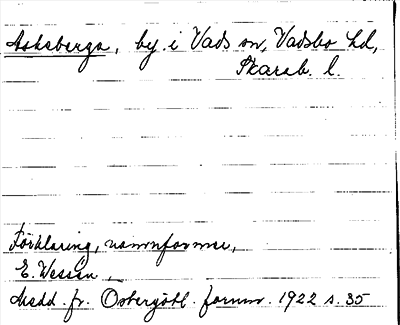 Askeberga, by i Vads sn, Vadsbo hd,
Skarab. l.
Förklaring, namnformer,
E. Wessén
Medd. fr. Östergötl. fornm. 1922 s. 35